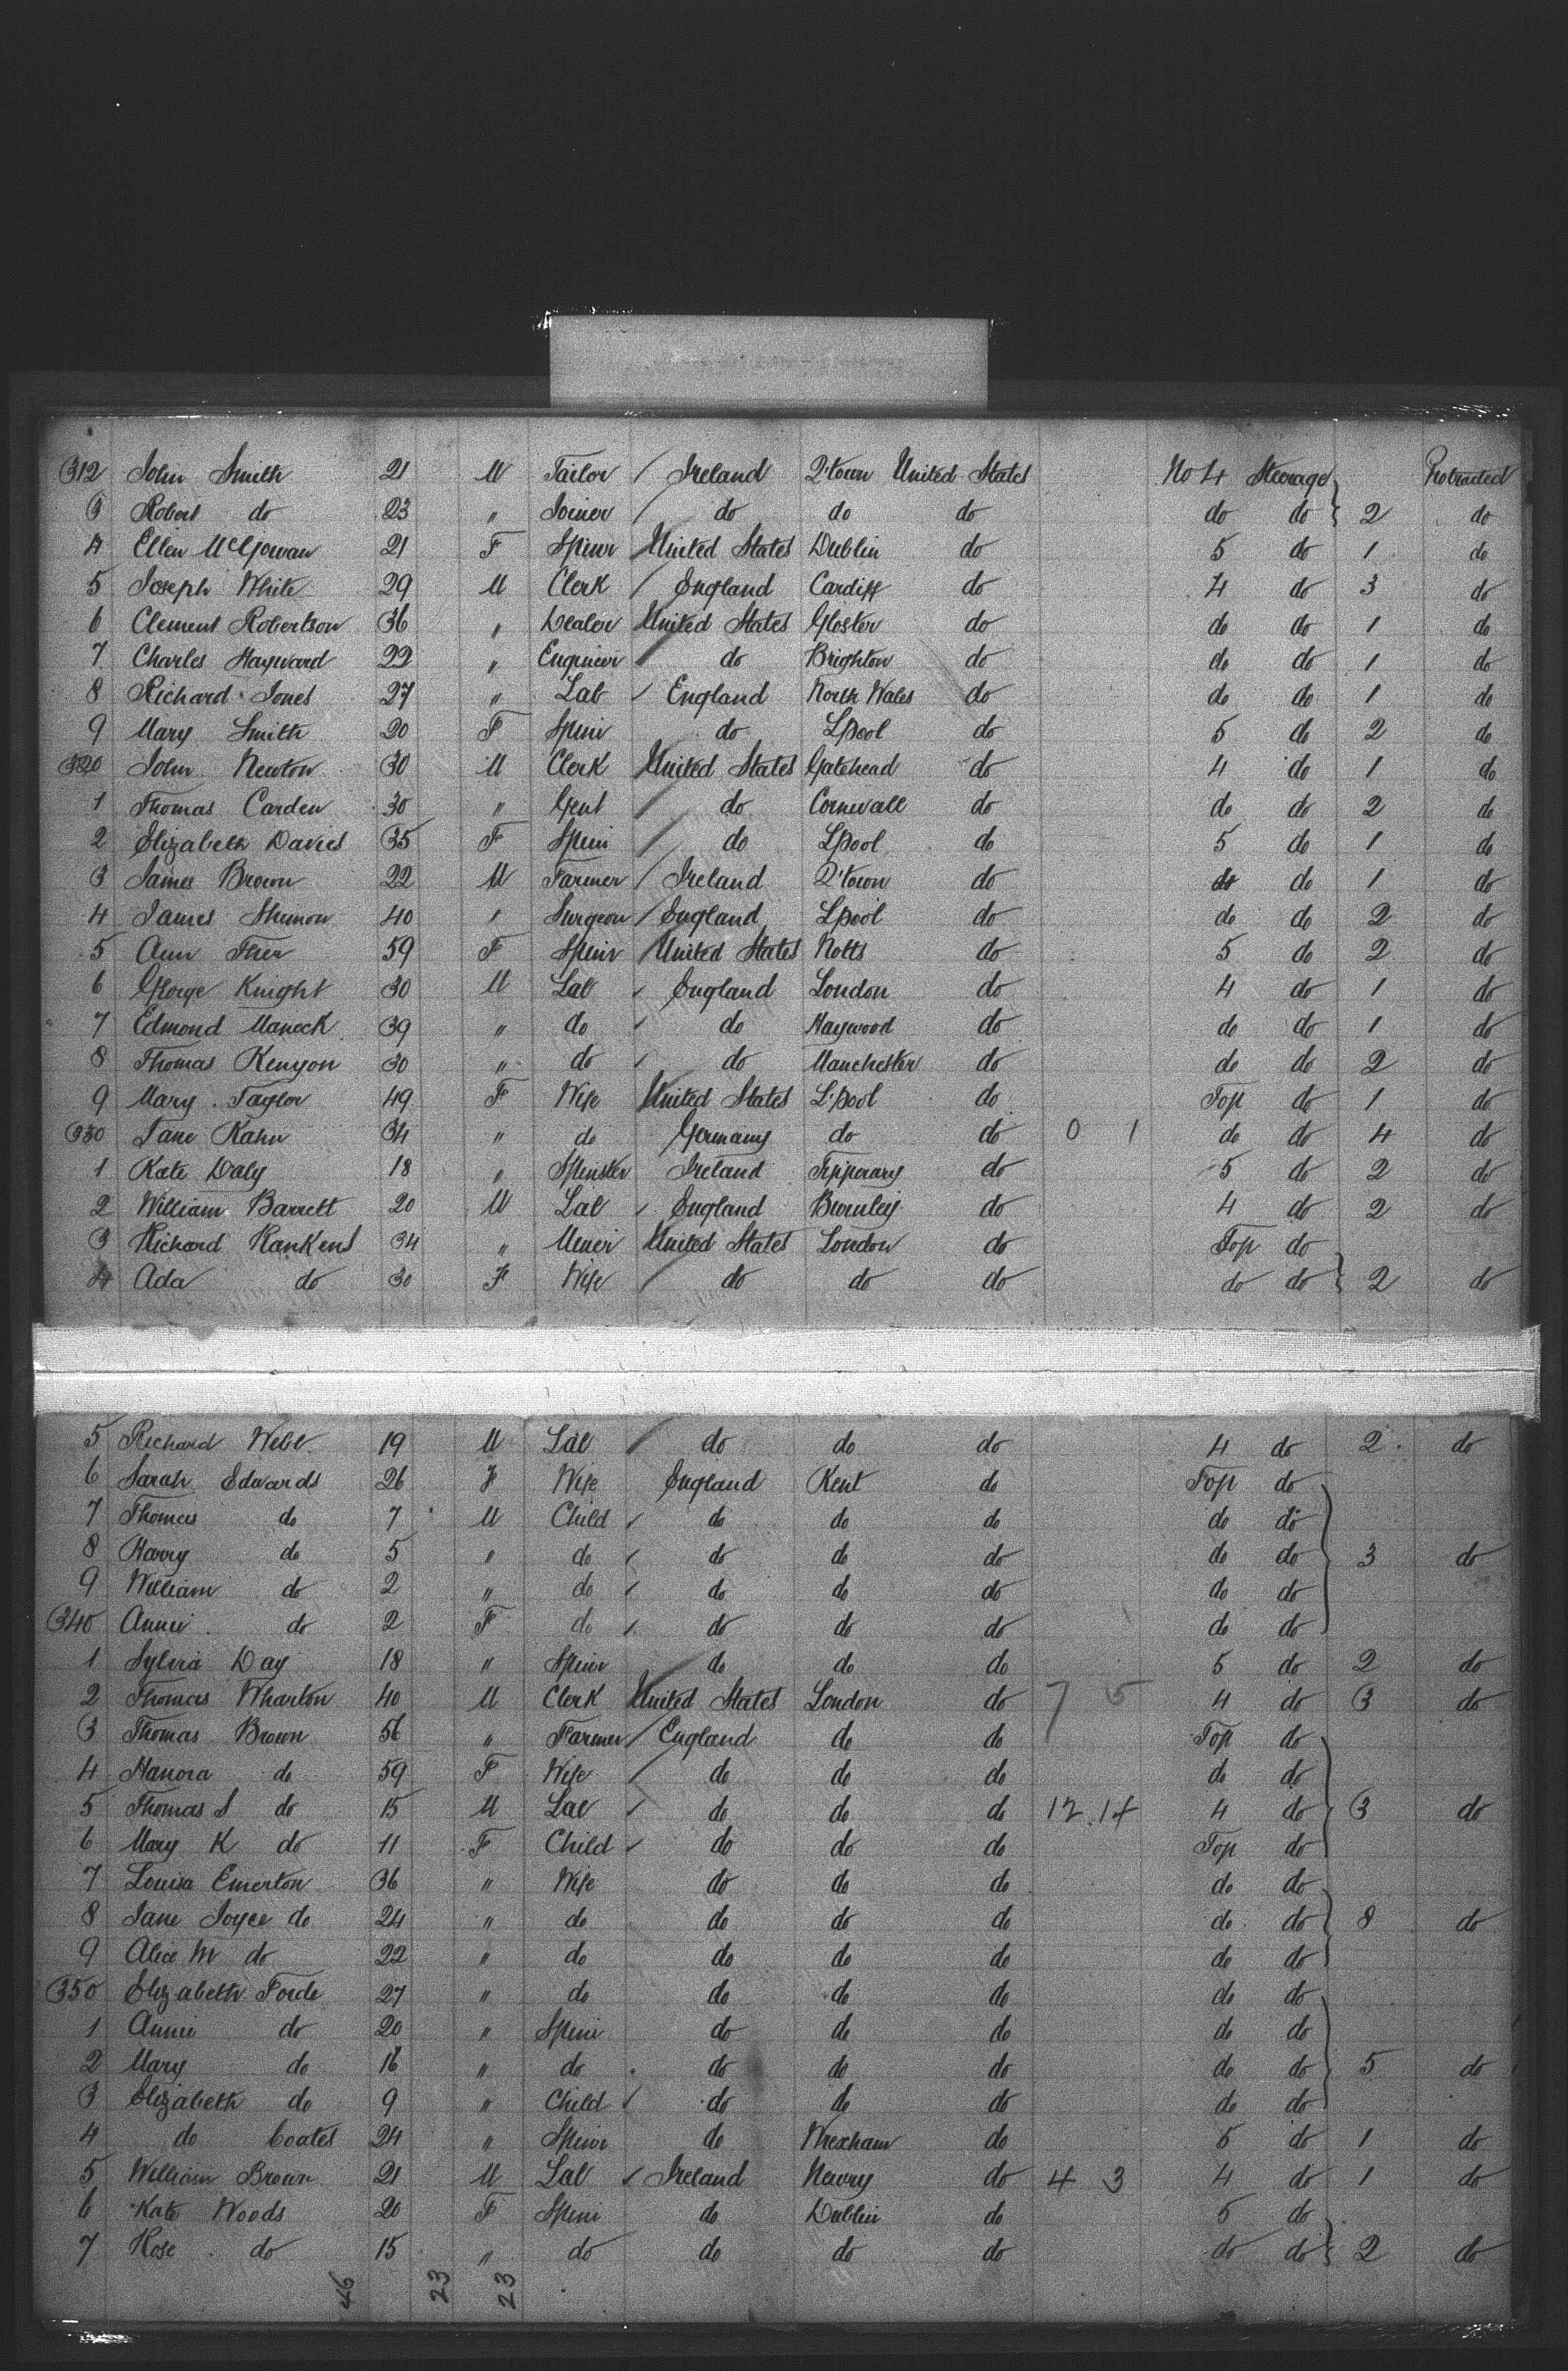 312 John Smith 21 M Tailor / Ireland Q'town United States No 4 Steerage Protracted
3 Robert do 23 " Joiner / do do do do do } 2 do
4 Ellen McGowan 21 F Spinr / United States Dublin do 5 do 1 do
5 Joseph White 29 M Clerk / England Cardiff do 4 do 3 do
6 Clement Robertson 36 " Dealer / United States Gloster do do do 1 do
7 Charles Hayward 22 " Engineer / do Brighton do do do 1 do
8 Richard Jones 27 " Lab / England North Wales do do do 1 do
9 Mary Smith 20 F Spinr do Lpool do 5 do 2 do
320 John Newton 30 M Clerk / United States Gatehead do 4 do 1 do
1 Thomas Carden 30 " Gent / do Cornwall do do do 2 do
2 Elizabeth Davies 35 F Spinr / do Lpool do 5 do 1 do
3 James Brown 22 M Farmer / Ireland Q'town do do 1 do
4 James 40 " Surgeon / England Lpool do do do 2 do
5 Ann 59 F Spinr / United States Notts do 5 do 2 do
6 George Knight 30 M Lab / England London do 4 do 1 do
7 Edmond Manock 39 " do / do Haywood do do do 1 do
8 Thomas Kenyon 30 " do / do Manchester do do do 2 do
9 Mary Taylor 49 F Wife / United States L'pool do Top do 1 do
330 Jane Kahn 34 " do Germany do do 0 1 do do 4 do
1 Kate Daly 18 " Spinster Ireland Tipperary do 5 do 2 do
2 William Barrett 20 M Lab / England Burnley do 4 do 2 do
3 Richard Rankens 34 " Miner / United States London do Top do
4 Ada do 30 F Wife / do do do do do } 2 do
5 Richard Webb 19 M Lab / do do do 4 do 2 do
6 Sarah Edwards 26 F Wife England Kent do Top do
7 Thomas do 7 M Child / do do do do do
8 Harry do 5 " do / do do do do do } 3 do
9 William do 2 " do / do do do do do
340 Annie do 2 F do / do do do do do
1 Sylvia Day 18 " Spinr do do do 5 do 2 do
2 Thomas Wharton 40 M Clerk / United States London do 7 5 4 do 3 do
3 Thomas Brown 56 " Farmer / England do do Top do
4 Hanora do 59 F Wife / do do do do do
5 Thomas S do 15 M Lab / do do do 12.14 4 do } 3 do
6 Mary K do 11 F Child / do do do Top do
7 Louisa Emerton 36 " Wife do do do do do
8 Jane Joyce do 24 " do do do do do do } 8 do
9 Alice M do 22 " do do do do do do
350 Elizabeth Forde 27 " do do do do do do
1 Annie do 20 " Spinr do do do do do
2 Mary do 16 " do do do do do do } 5 do
3 Elizabeth do 9 " Child / do do do do do
4 do Coates 24 " Spinr do Wrexham do 5 do 1 do
5 William Brown 21 M Lab / Ireland Newry do 4 3 4 do 1 do
6 Kate Woods 20 F Spinr do Dublin do 5 do
7 Rose do 15 " do do do do do do } 2 do
46 23 23